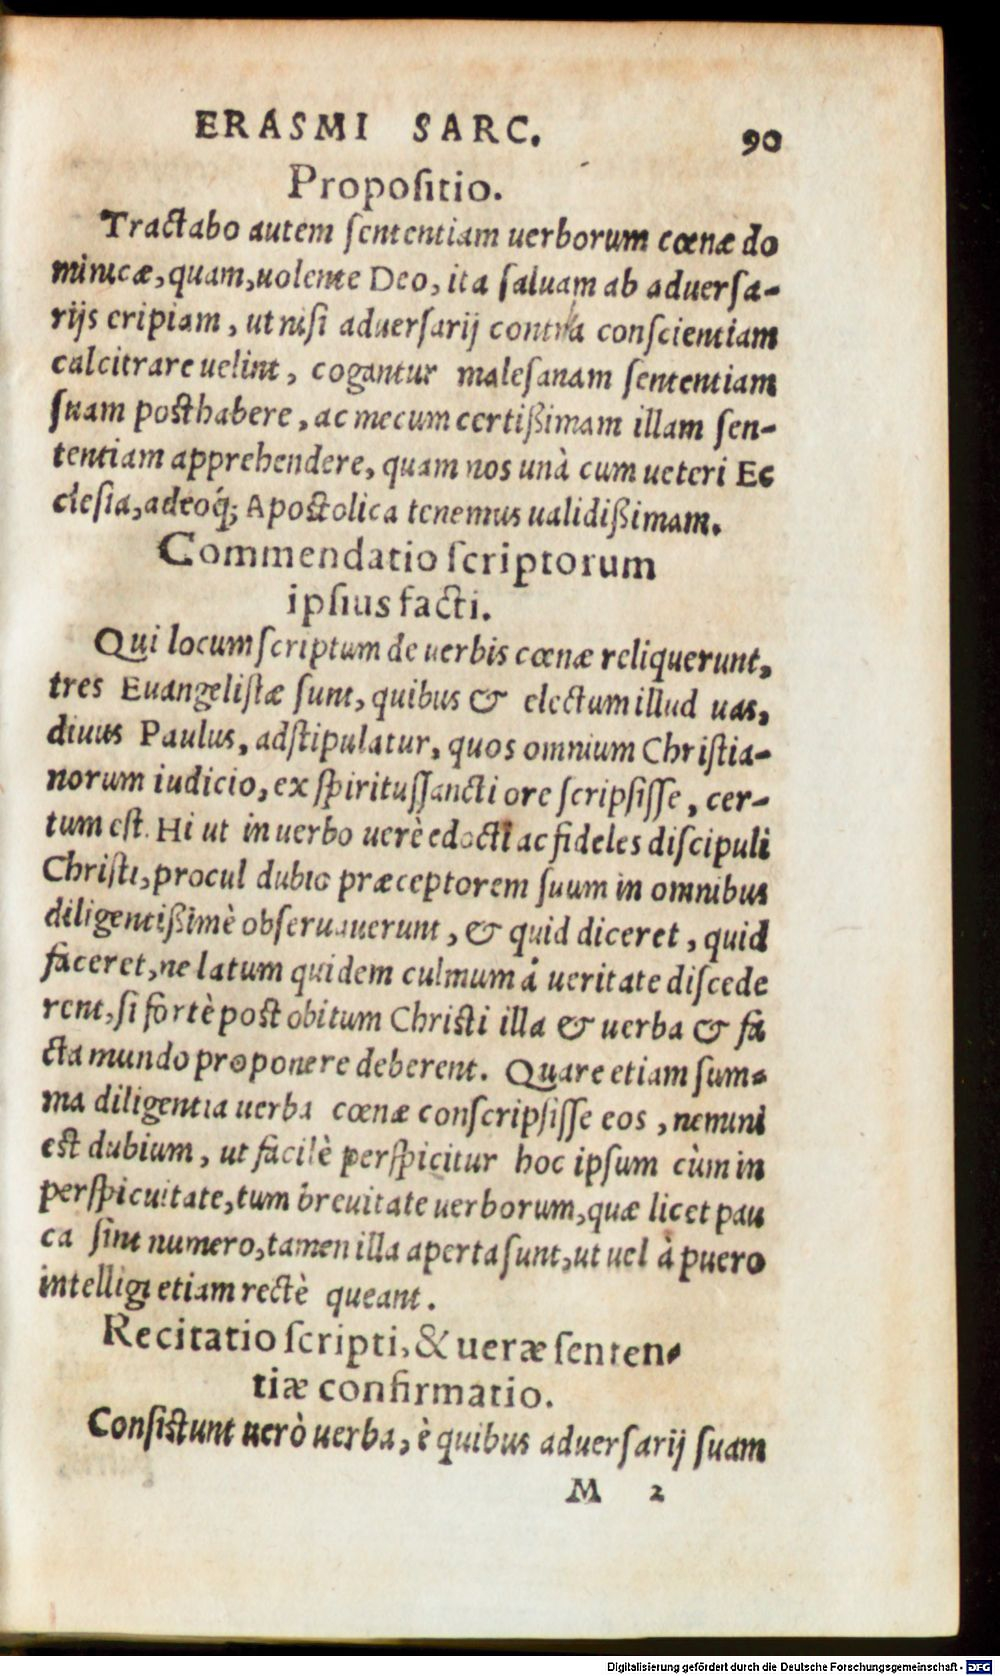 ERASMI SARC. 90
Propositio.
Tractabo autem sententiam uerborum cœnæ do
minicæ, quam, uolente Deo, ita saluam ab aduersa-
rijs eripiam, ut nisi aduersarij contra conscientiam
calcitrare uelint, cogantur malesanam sententiam
suam posthabere, ac mecum certißimam illam sen-
tentiam apprehendere, quam nos unà cum ueteri Ec
clesia, adeoq́; Apostolica tenemus ualidißimam.
Commendatio scriptorum
ipsius facti.
Qui locum scriptum de uerbis cœnæ reliquerunt,
tres Euangelistæ sunt, quibus & electum illud uas,
diuus Paulus, adstipulatur, quos omnium Christia-
norum iudicio, ex spiritussancti ore scripsisse, cer-
tum est. Hi ut in uerbo uerè edocti ac fideles discipuli
Christi, procul dubio præceptorem suum in omnibus
diligentißimè obseruauerunt, & quid diceret, quid
faceret, ne latum quidem culmum à ueritate discede
rent, si fortè post obitum Christi illa & uerba & fa
cta mundo proponere deberent. Quare etiam sum-
ma diligentia uerba cœnæ conscripsisse eos, nemini
est dubium, ut facilè perspicitur hoc ipsum cùm in
perspicuitate, tum breuitate uerborum, quæ licet pau
ca sint numero, tamen illa aperta sunt, ut uel à puero
intelligi etiam rectè queant.
Recitatio scripti, & ueræ senten-
tiæ confirmatio.
Consistunt uerò uerba, è quibus aduersarij suam
M 2
Digitalisierung gefördert durch die Deutsche Forschungsgemeinschaft - DFG